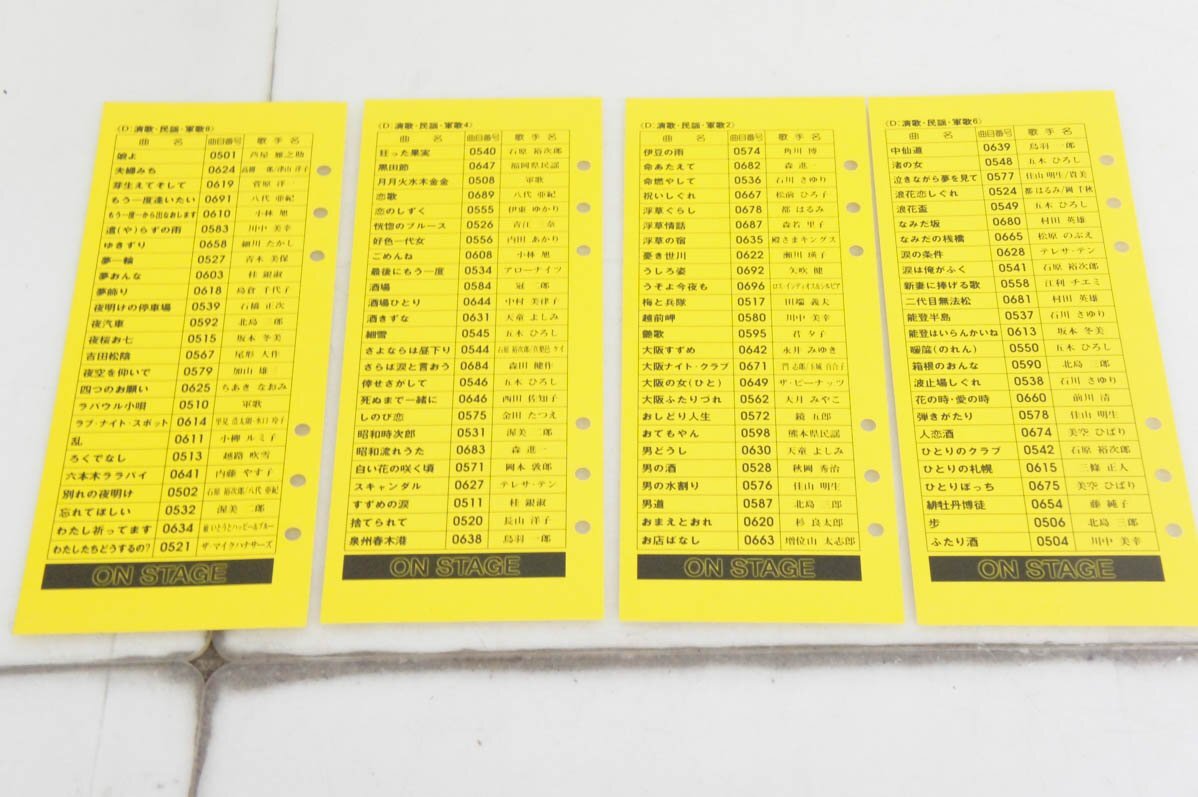 (D:演歌・民謡・軍歌8)
曲 名 曲目番号 歌 手 名
娘よ 0501 芦屋 雁之助
夫婦みち 0624
芽生えてそして 0619 菅原 洋一
もう一度逢いたい 0691 八代 亜紀
もう一度一から出なおします 0610 小林 旭
遣(や)らずの雨 0583 川中 美幸
ゆきずり 0658 細川 たかし
夢一輪 0527 青木 美保
夢おんな 0603 桂 銀淑
夢飾り 0618 島倉 千代子
夜明けの停車場 0539 石橋 正次
夜汽車 0592 北島 三郎
夜桜お七 0515 坂本 冬美
吉田松陰 0567 尾形 大作
夜空を仰いで 0579 加山 雄三
四つのお願い 0625 ちあき なおみ
ラバウル小唄 0510 軍歌
ラブ・ナイト・スポット 0614
乱 0611 小柳 ルミ子
ろくでなし 0513 越路 吹雪
六本木ララバイ 0641 内藤 やす子
別れの夜明け 0502 石原 裕次郎/八代 亜紀
忘れてほしい 0532 渥美 二郎
わたし祈ってます 0634
わたしたちどうするの? 0521 ザ・マイクハナサーズ
ON STAGE
(D:演歌・民謡・軍歌4)
曲 名 曲目番号 歌 手 名
狂った果実 0540 石原 裕次郎
黒田節 0647 福岡県民謡
月月火水木金金 0508 軍歌
恋歌 0689 八代 亜紀
恋のしずく 0555 伊東 ゆかり
恍惚のブルース 0526 青江 三奈
好色一代女 0556 内田 あかり
ごめんね 0608 小林 旭
最後にもう一度 0534 アローナイツ
酒場 0584 冠 二郎
酒場ひとり 0644 中村 美律子
酒きずな 0631 天童 よしみ
細雪 0545 五木 ひろし
さよならは昼下り 0544
さらば涙と言おう 0684 森田 健作
倖せさがして 0546 五木 ひろし
死ぬまで一緒に 0646 西田 佐知子
しのび恋 0575 金田 たつえ
昭和時次郎 0531 渥美 二郎
昭和流れうた 0683 森 進一
白い花の咲く頃 0571 岡本 敦郎
スキャンダル 0627 テレサ・テン
すずめの涙 0511 桂 銀淑
捨てられて 0520 長山 洋子
泉州春木港 0638 鳥羽 一郎
ON STAGE
(D:演歌・民謡・軍歌2)
曲 名 曲目番号 歌 手 名
伊豆の雨 0574 角川 博
命あたえて 0682 森 進一
命燃やして 0536 石川 さゆり
祝いしぐれ 0667 松前 ひろ子
浮草ぐらし 0678 都 はるみ
浮草情話 0687 森若 里子
浮草の宿 0635 殿さまキングス
憂き世川 0622 瀬川 瑛子
うしろ姿 0692 矢吹 健
うそよ今夜も 0696
梅と兵隊 0517 田端 義夫
越前岬 0580 川中 美幸
艶歌 0595 君 夕子
大阪すずめ 0642 永井 みゆき
大阪ナイト・クラブ 0671
大阪の女(ひと) 0649 ザ・ピーナッツ
大阪ふたりづれ 0562 大月 みやこ
おしどり人生 0572 鏡 五郎
おてもやん 0598 熊本県民謡
男どうし 0630 天童 よしみ
男の酒 0528 秋岡 秀治
男の水割り 0576 佳山 明生
男道 0587 北島 三郎
おまえとおれ 0620 杉 良太郎
お店ばなし 0663 増位山 太志郎
ON STAGE
(D:演歌・民謡・軍歌6)
曲 名 曲目番号 歌 手 名
中仙道 0639 鳥羽 一郎
渚の女 0548 五木 ひろし
泣きながら夢を見て 0577 佳山 明生/貴美
浪花恋しぐれ 0524 都 はるみ/岡 千秋
浪花盃 0549 五木 ひろし
なみだ坂 0680 村田 英雄
なみだの桟橋 0665 松原 のぶえ
涙の条件 0628 テレサ・テン
涙は俺がふく 0541 石原 裕次郎
新妻に捧げる歌 0558 江利 チエミ
二代目無法松 0681 村田 英雄
能登半島 0537 石川 さゆり
能登はいらんかいね 0613 坂本 冬美
暖簾(のれん) 0550 五木 ひろし
箱根のおんな 0590 北島 三郎
波止場しぐれ 0538 石川 さゆり
花の時・愛の時 0660 前川 清
弾きがたり 0578 佳山 明生
人恋酒 0674 美空 ひばり
ひとりのクラブ 0542 石原 裕次郎
ひとりの札幌 0615 三條 正人
ひとりぼっち 0675 美空 ひばり
緋牡丹博徒 0654 藤 純子
歩 0506 北島 三郎
ふたり酒 0504 川中 美幸
ON STAGE